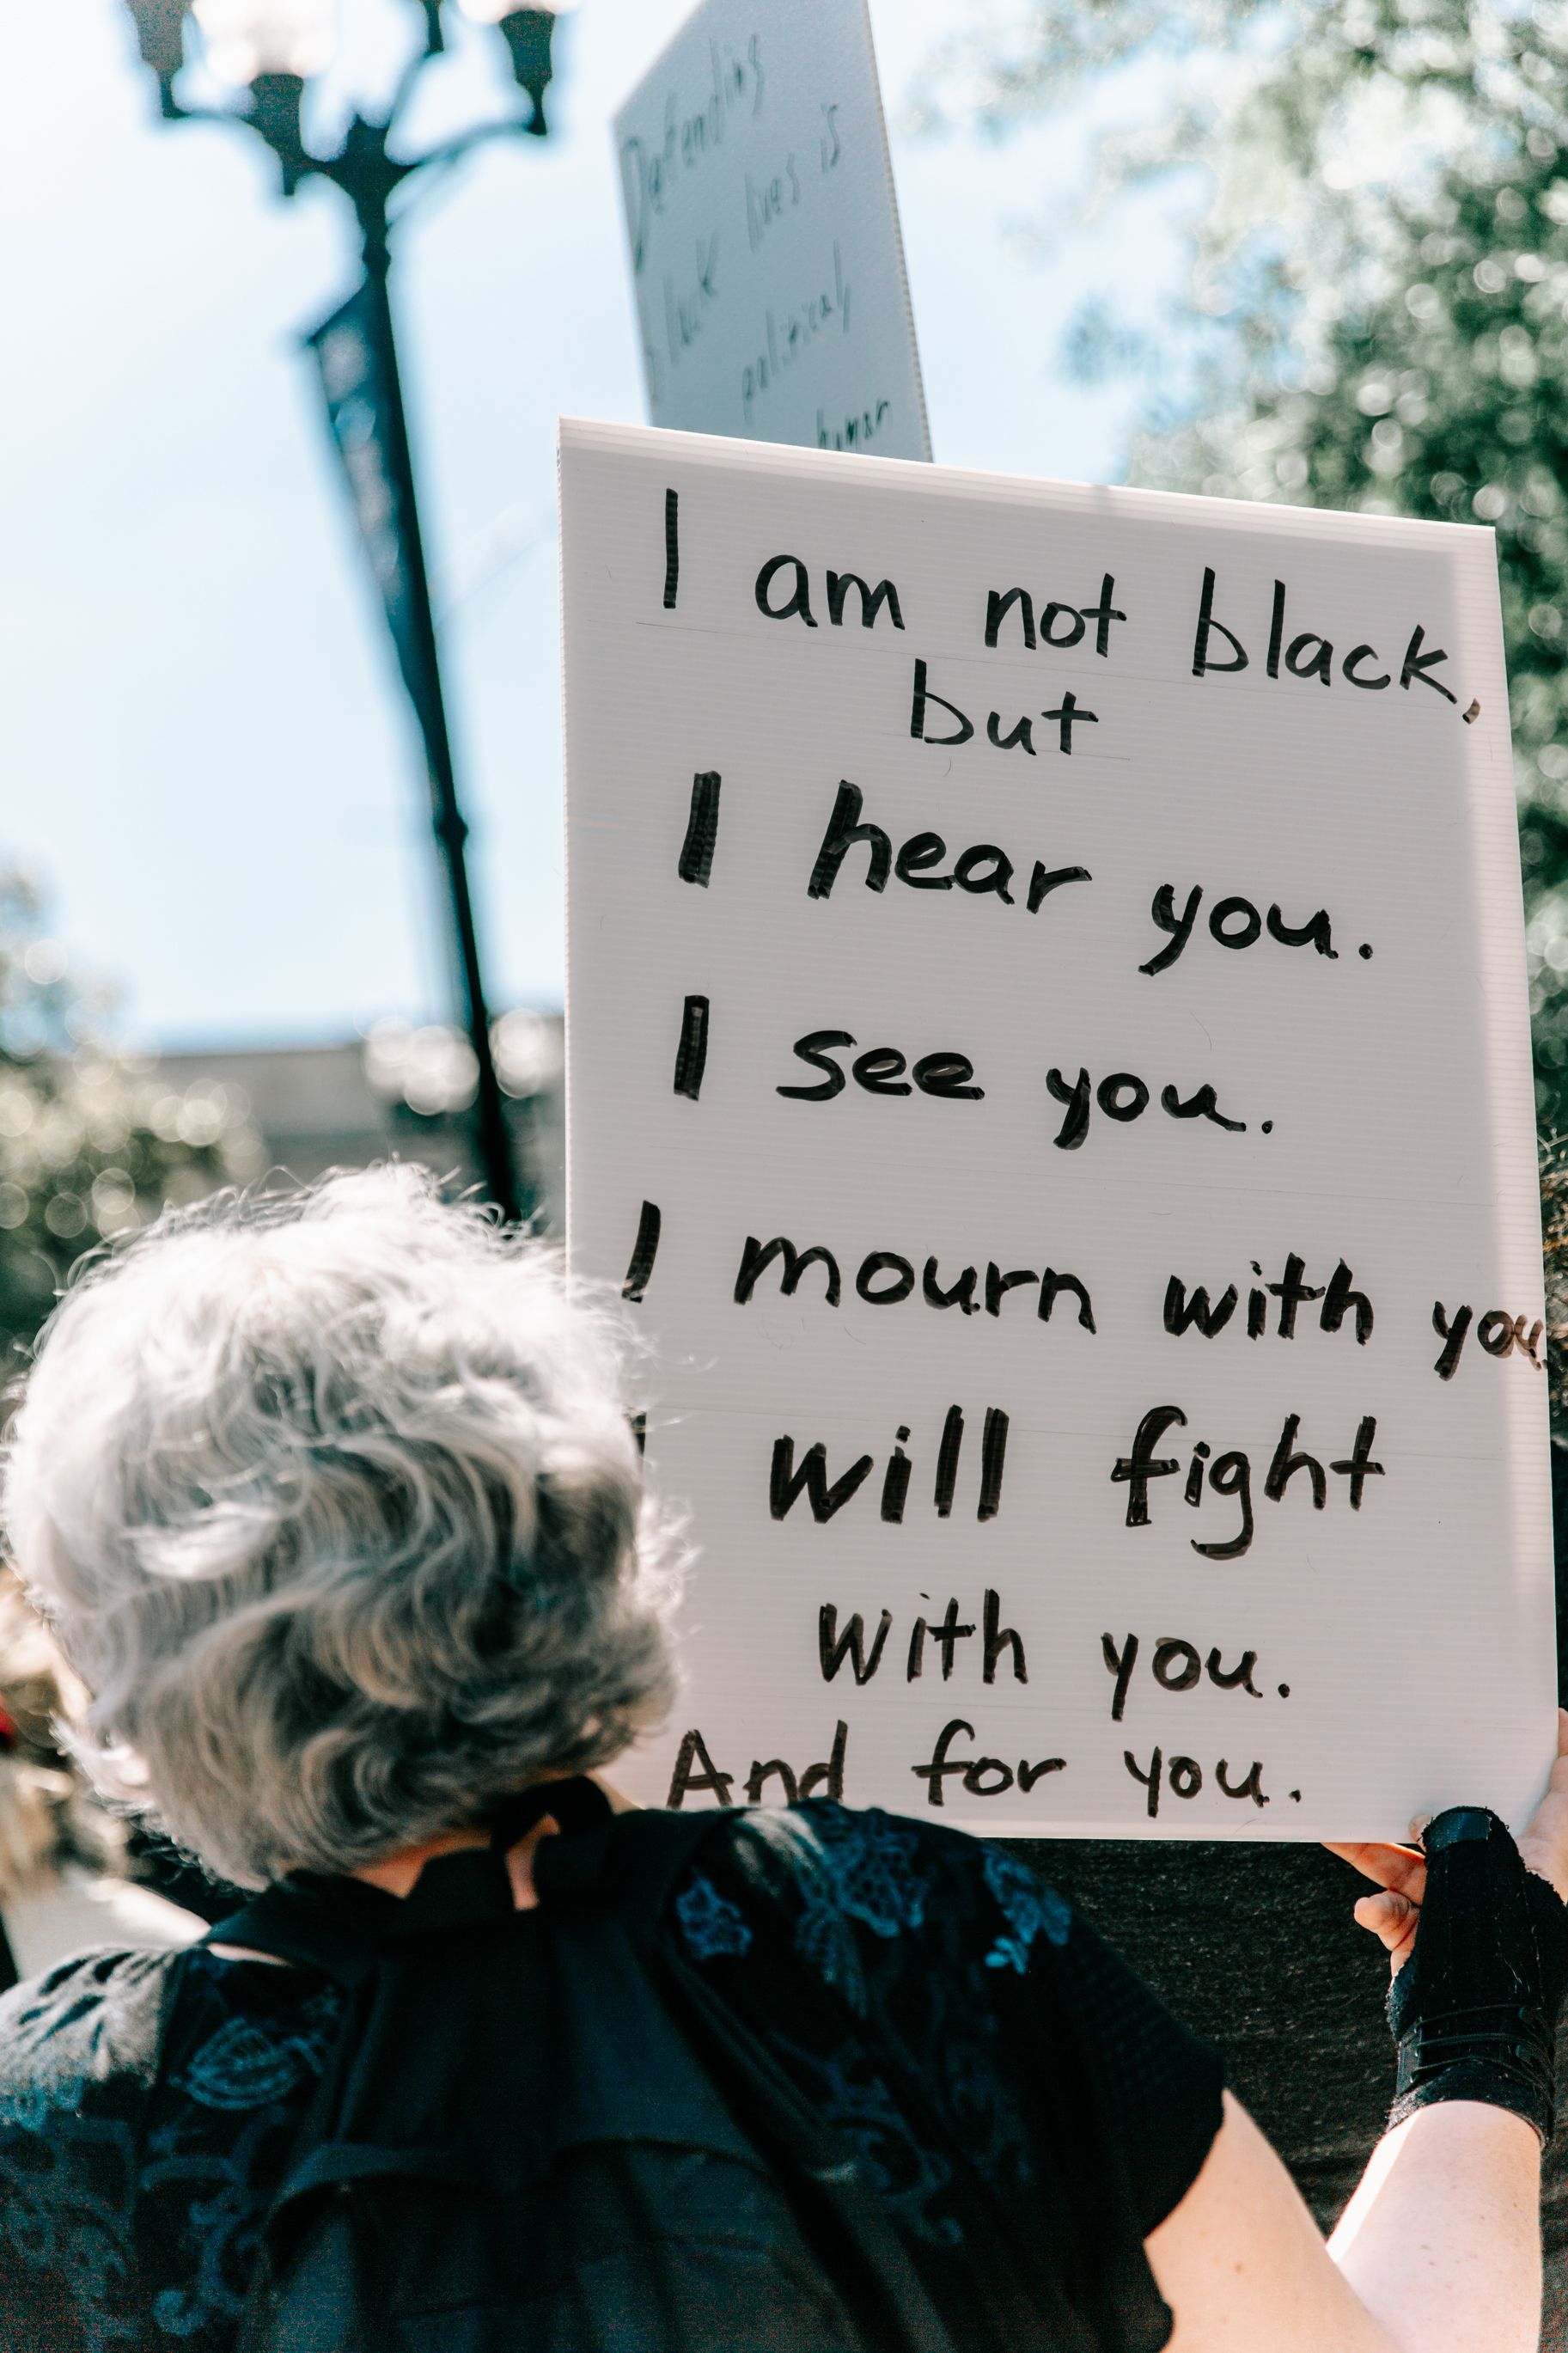 Defending
black lives is
political,
human
I am not black,
but
I hear you.
I see you.
I mourn with you.
I will fight
with you.
And for you.